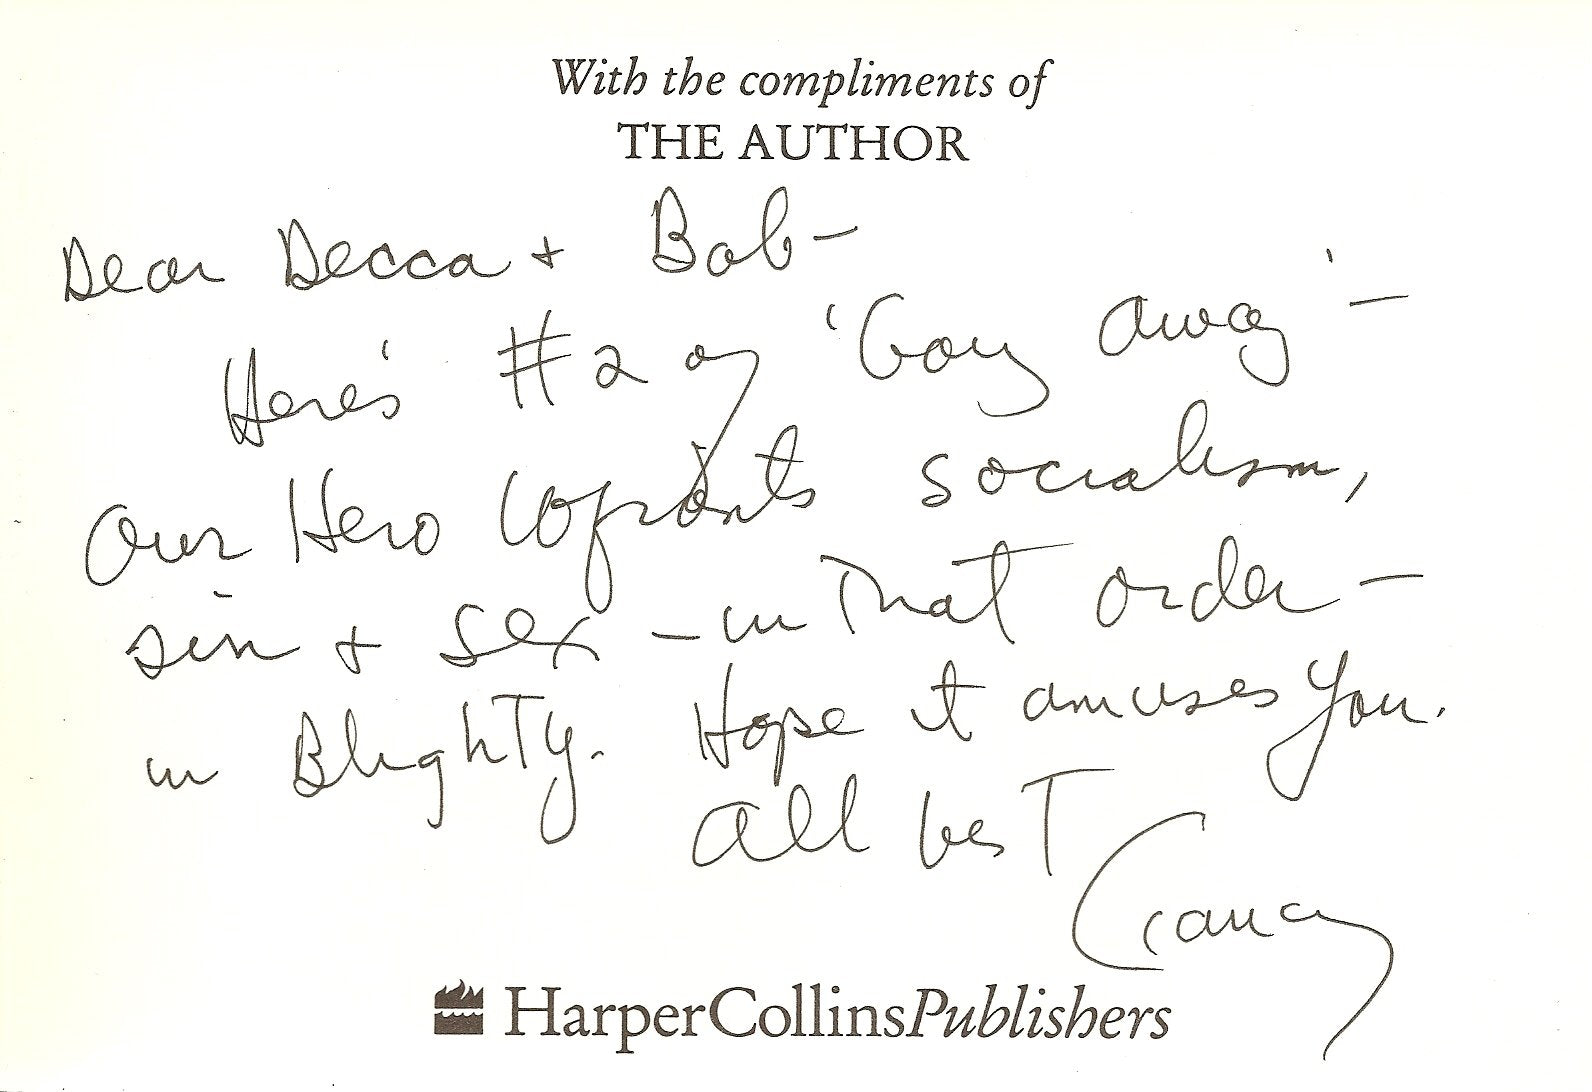 With the compliments of
THE AUTHOR
Dear Decca + Bob –
Here's #2 of 'Going Away' –
Our Hero confronts socialism,
sin + sex – in that order –
in Blighty. Hope it amuses you.
All best
Clancy
HarperCollinsPublishers